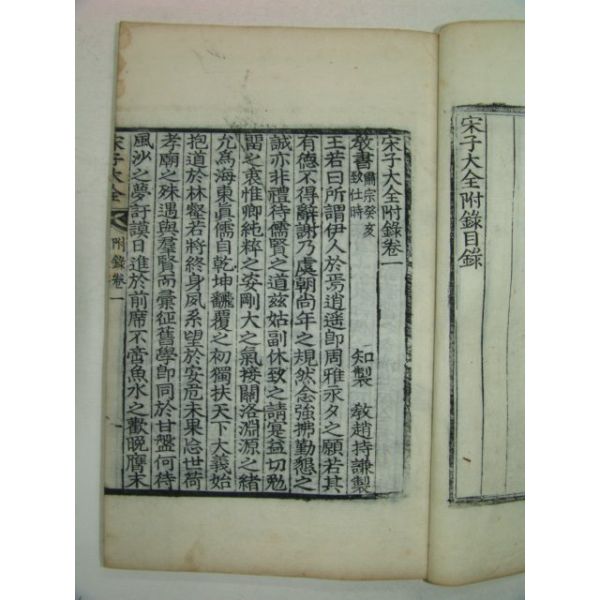 宋子大全附錄目錄
宋子大全附錄卷一
敎書 肅宗癸亥致仕時 知製 敎趙持謙製
王若曰所謂伊人於焉逍遥卽周雅永夕之願若其
有德不得辭謝乃虞朝尚年之規然念強拂勤懇之
誠亦非禮待儒賢之道玆姑副休致之請寔益切勉
留之衷惟卿純粹之姿剛大之氣接關洛淵源之緒
允爲海東眞儒自乾坤飜覆之初獨扶天下大義始
抱道於林壑若將終身夙系望於安危未果忘世荷
孝廟之殊遇與羣賢而彙征舊學卽同於甘盤何待
風沙之夢訏謨日進於前席不啻魚水之歡晩膺末
宋子大全 附錄卷一